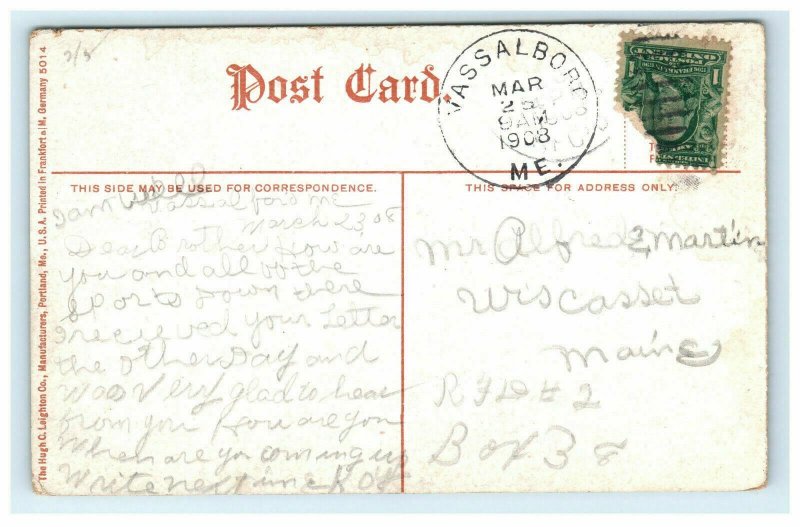 Post Card.
VASSALBORO
MAR
9 AM
1908
ME.
THIS SIDE MAY BE USED FOR CORRESPONDENCE.
THIS SPACE FOR ADDRESS ONLY.
The Hugh C. Leighton Co., Manufacturers, Portland, Me., U.S.A. Printed in Frankfort a/M, Germany 5014
I am well
Vassalboro Me
March 23, 08
Dear Brother How are
you and all of the
sports down there
I recieved your Letter
the other Day and
was Very glad to hear
from you How are you
When are you coming up
Write next time
Mr Alfred E, Martin
Wiscasset
Maine
R F D # 2
Box 38